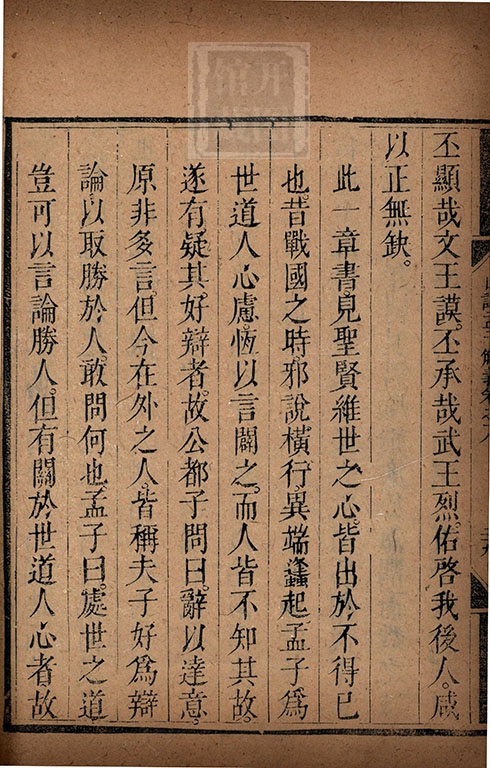 丕顯哉文王謨。丕承哉武王烈。佑啓我後人。咸
以正無缺。
此一章書。見聖賢維世之心。皆出於不得已
也。昔戰國之時。邪說橫行。異端蠭起。孟子爲
世道人心慮。恆以言闢之。而人皆不知其故。
遂有疑其好辯者。故公都子問曰。辭以達意。
原非多言。但今在外之人。皆稱夫子好爲辯
論。以取勝於人。敢問何也。孟子曰。處世之道
豈可以言論勝人。但有關於世道人心者。故